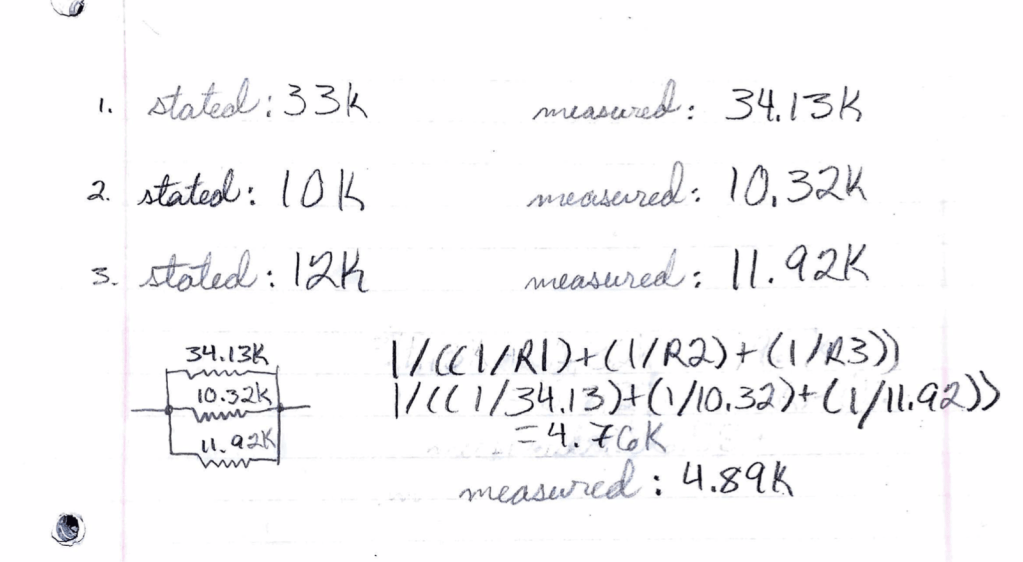 1. stated: 33K measured: 34.13K
2. stated: 10K measured: 10.32K
3. stated: 12K measured: 11.92K
34.13K
10.32K
11.92K
1/((1/R1)+(1/R2)+(1/R3))
1/((1/34.13)+(1/10.32)+(1/11.92))
=4.76K
measured: 4.89K